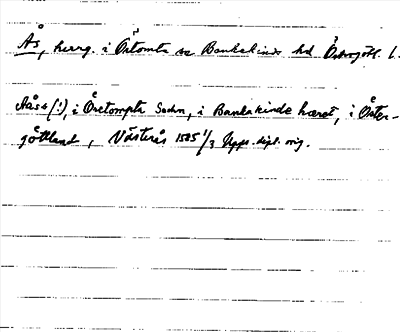 Ås, herrg. i Örtomta sn Bankekinds hd Östergötl. l.
Aåss (!), i Öretompta Sochn, i Bankakinde hæret, i Öster-
götland, Västerås 1505 1/3 Upps. dipl. orig.